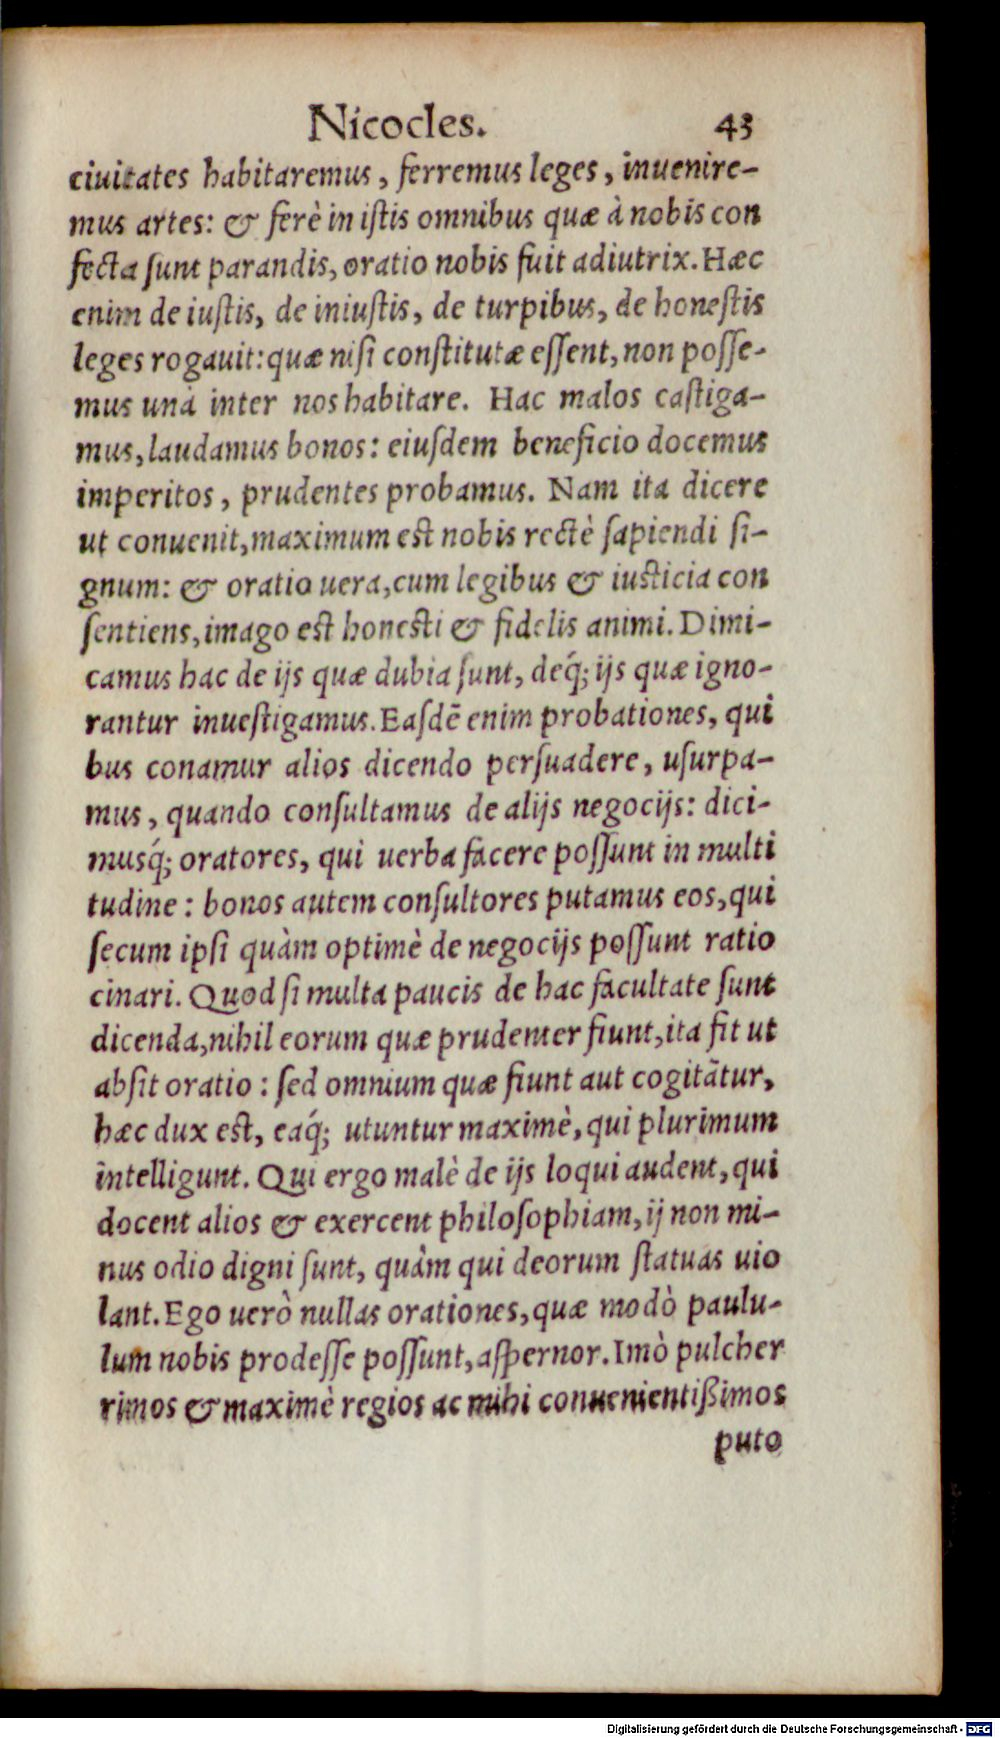 Nicocles. 43
ciuitates habitaremus, ferremus leges, inuenire-
mus artes: & ferè in iſtis omnibus quæ à nobis con
fecta ſunt parandis, oratio nobis fuit adiutrix. Hæc
enim de iuſtis, de iniuſtis, de turpibus, de honeſtis
leges rogauit: quæ niſi conſtitutæ eſſent, non poſſe-
mus unà inter nos habitare. Hac malos caſtiga-
mus, laudamus bonos: eiuſdem beneficio docemus
imperitos, prudentes probamus. Nam ita dicere
ut conuenit, maximum est nobis rectè ſapiendi ſi-
gnum: & oratio uera, cum legibus & iusticia con
ſentiens, imago est honesti & fidelis animi. Dimi-
camus hac de ijs quæ dubia ſunt, deq́; ijs quæ igno-
rantur inueſtigamus. Eaſdē enim probationes, qui
bus conamur alios dicendo perſuadere, uſurpa-
mus, quando conſultamus de alijs negocijs: dici-
musq́; oratores, qui uerba facere poſſunt in multi
tudine: bonos autem conſultores putamus eos, qui
ſecum ipſi quàm optimè de negocijs poſſunt ratio
cinari. Quod ſi multa paucis de hac facultate ſunt
dicenda, nihil eorum quæ prudenter fiunt, ita fit ut
abſit oratio: ſed omnium quæ fiunt aut cogitātur,
hæc dux est, eaq́; utuntur maximè, qui plurimum
intelligunt. Qui ergo malè de ijs loqui audent, qui
docent alios & exercent philoſophiam, ij non mi-
nus odio digni ſunt, quàm qui deorum ſtatuas uio
lant. Ego uerò nullas orationes, quæ modò paulu-
lum nobis prodeſſe poſſunt, aſpernor. Imò pulcher
rimos & maximè regios ac mihi conuenientißimos
puto
Digitalisierung gefördert durch die Deutsche Forschungsgemeinschaft - DFG